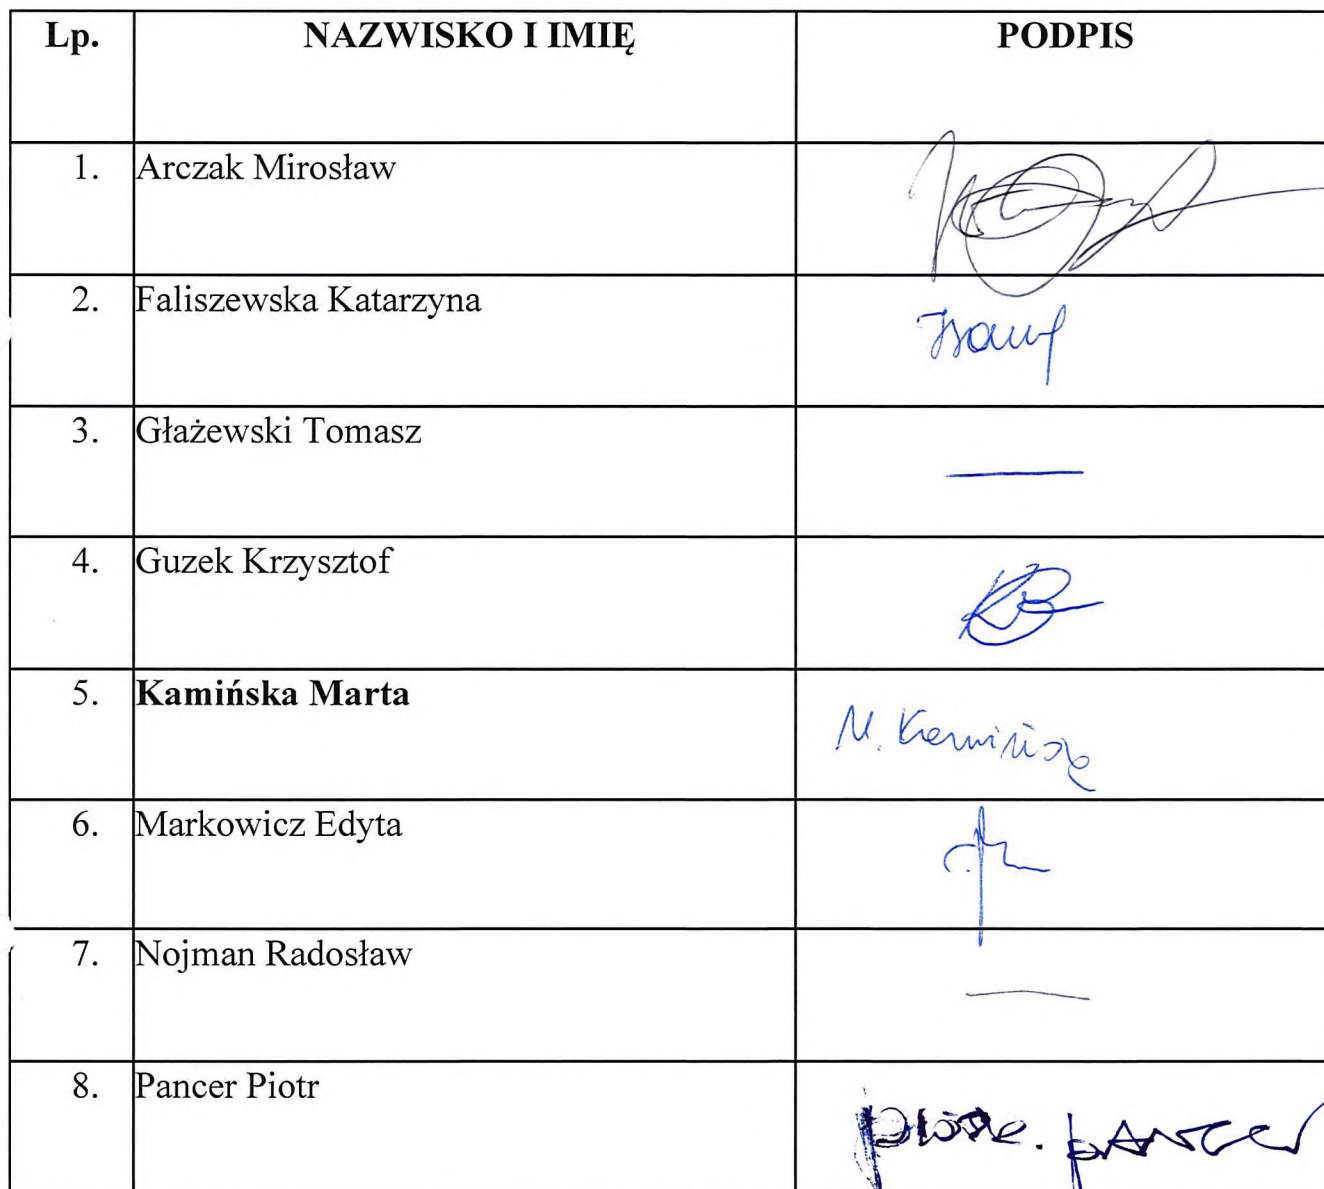 Lp. NAZWISKO I IMIĘ PODPIS
1. Arczak Mirosław
2. Faliszewska Katarzyna
3. Głażewski Tomasz
4. Guzek Krzysztof
5. Kamińska Marta
M. Kamińska
6. Markowicz Edyta
7. Nojman Radosław
8. Pancer Piotr
Piotr. PANCER